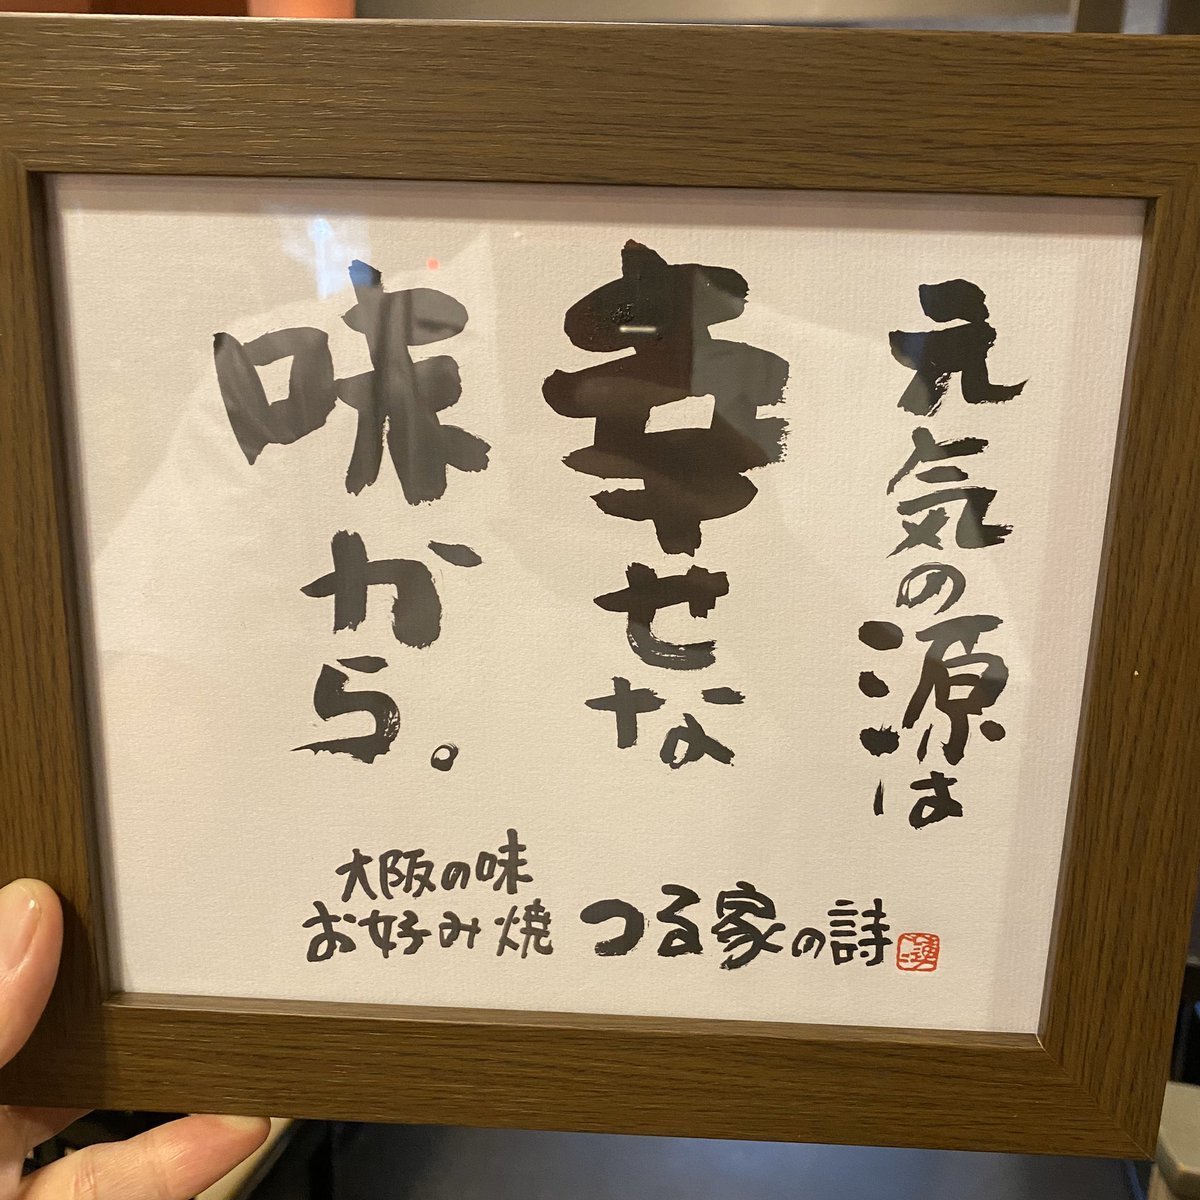 元気の源は
幸せな
味から。
大阪の味
お好み焼 つる家の詩